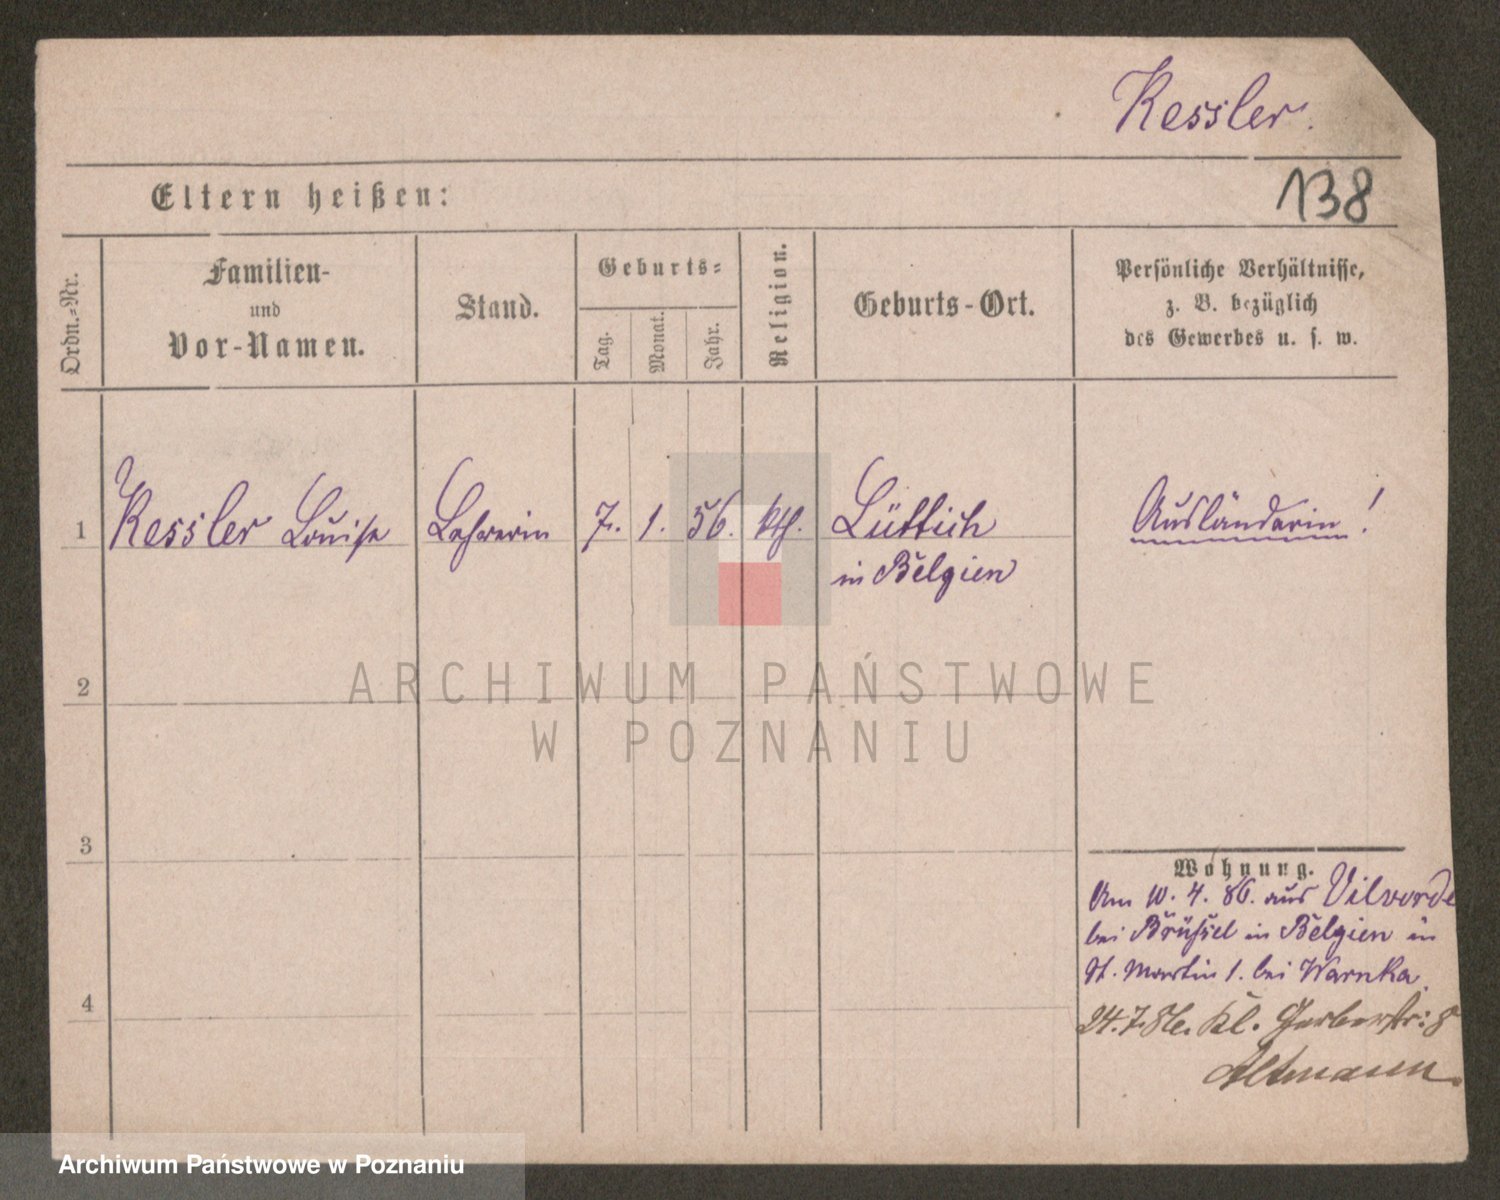 Kessler.
138
Eltern heißen:
Ordn.=Nr.
Familien-
und
Vor-Namen.
Stand.
Geburts=
Tag.
Monat.
Jahr.
Religion.
Geburts-Ort.
Persönliche Verhältnisse,
z. B. bezüglich
des Gewerbes u. s. w.
1 Kessler Louise Lehrerin 7. 1. 56. kth. Lüttich Ausländerin!
in Belgien
2
ARCHIWUM PAŃSTWOWE
W POZNANIU
3
Wohnung.
Am 10. 4. 86. aus Vilvorde
bei Brüssel in Belgien in
St. Martin 1. bei Warnka.
4
24.7.86. Kl. Gerberstr: 8
Altmann.
Archiwum Państwowe w Poznaniu